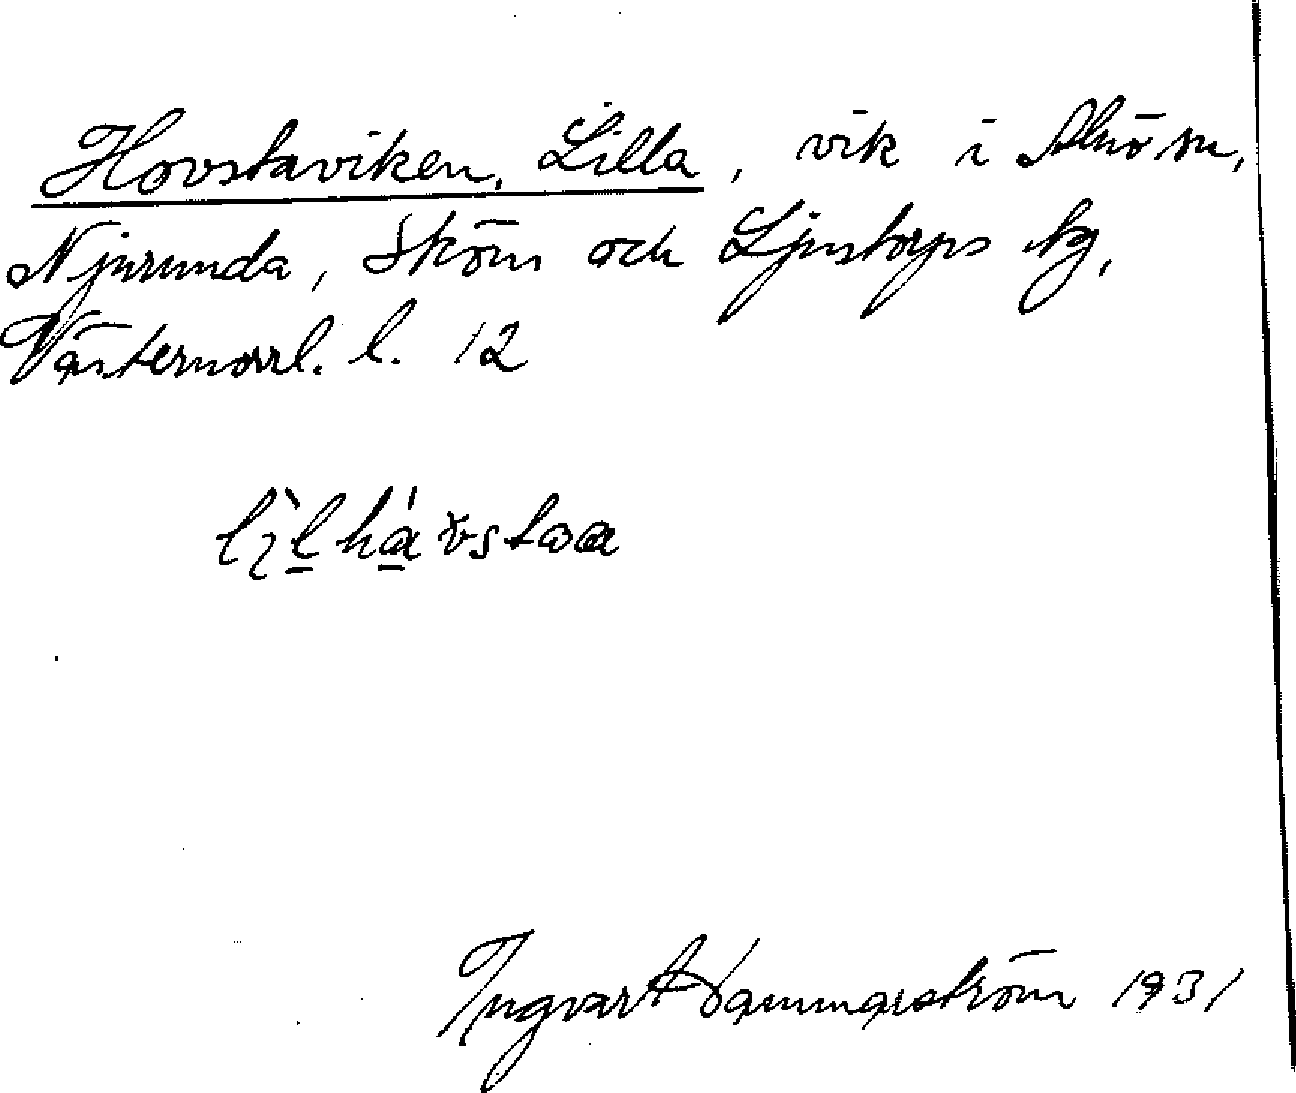 Hovstaviken, Lilla, vik i Skösn,
Njurunda, Sköns och Ljustorps tg,
Västernorrl. l. 12
Ingvar Hammarström 1931